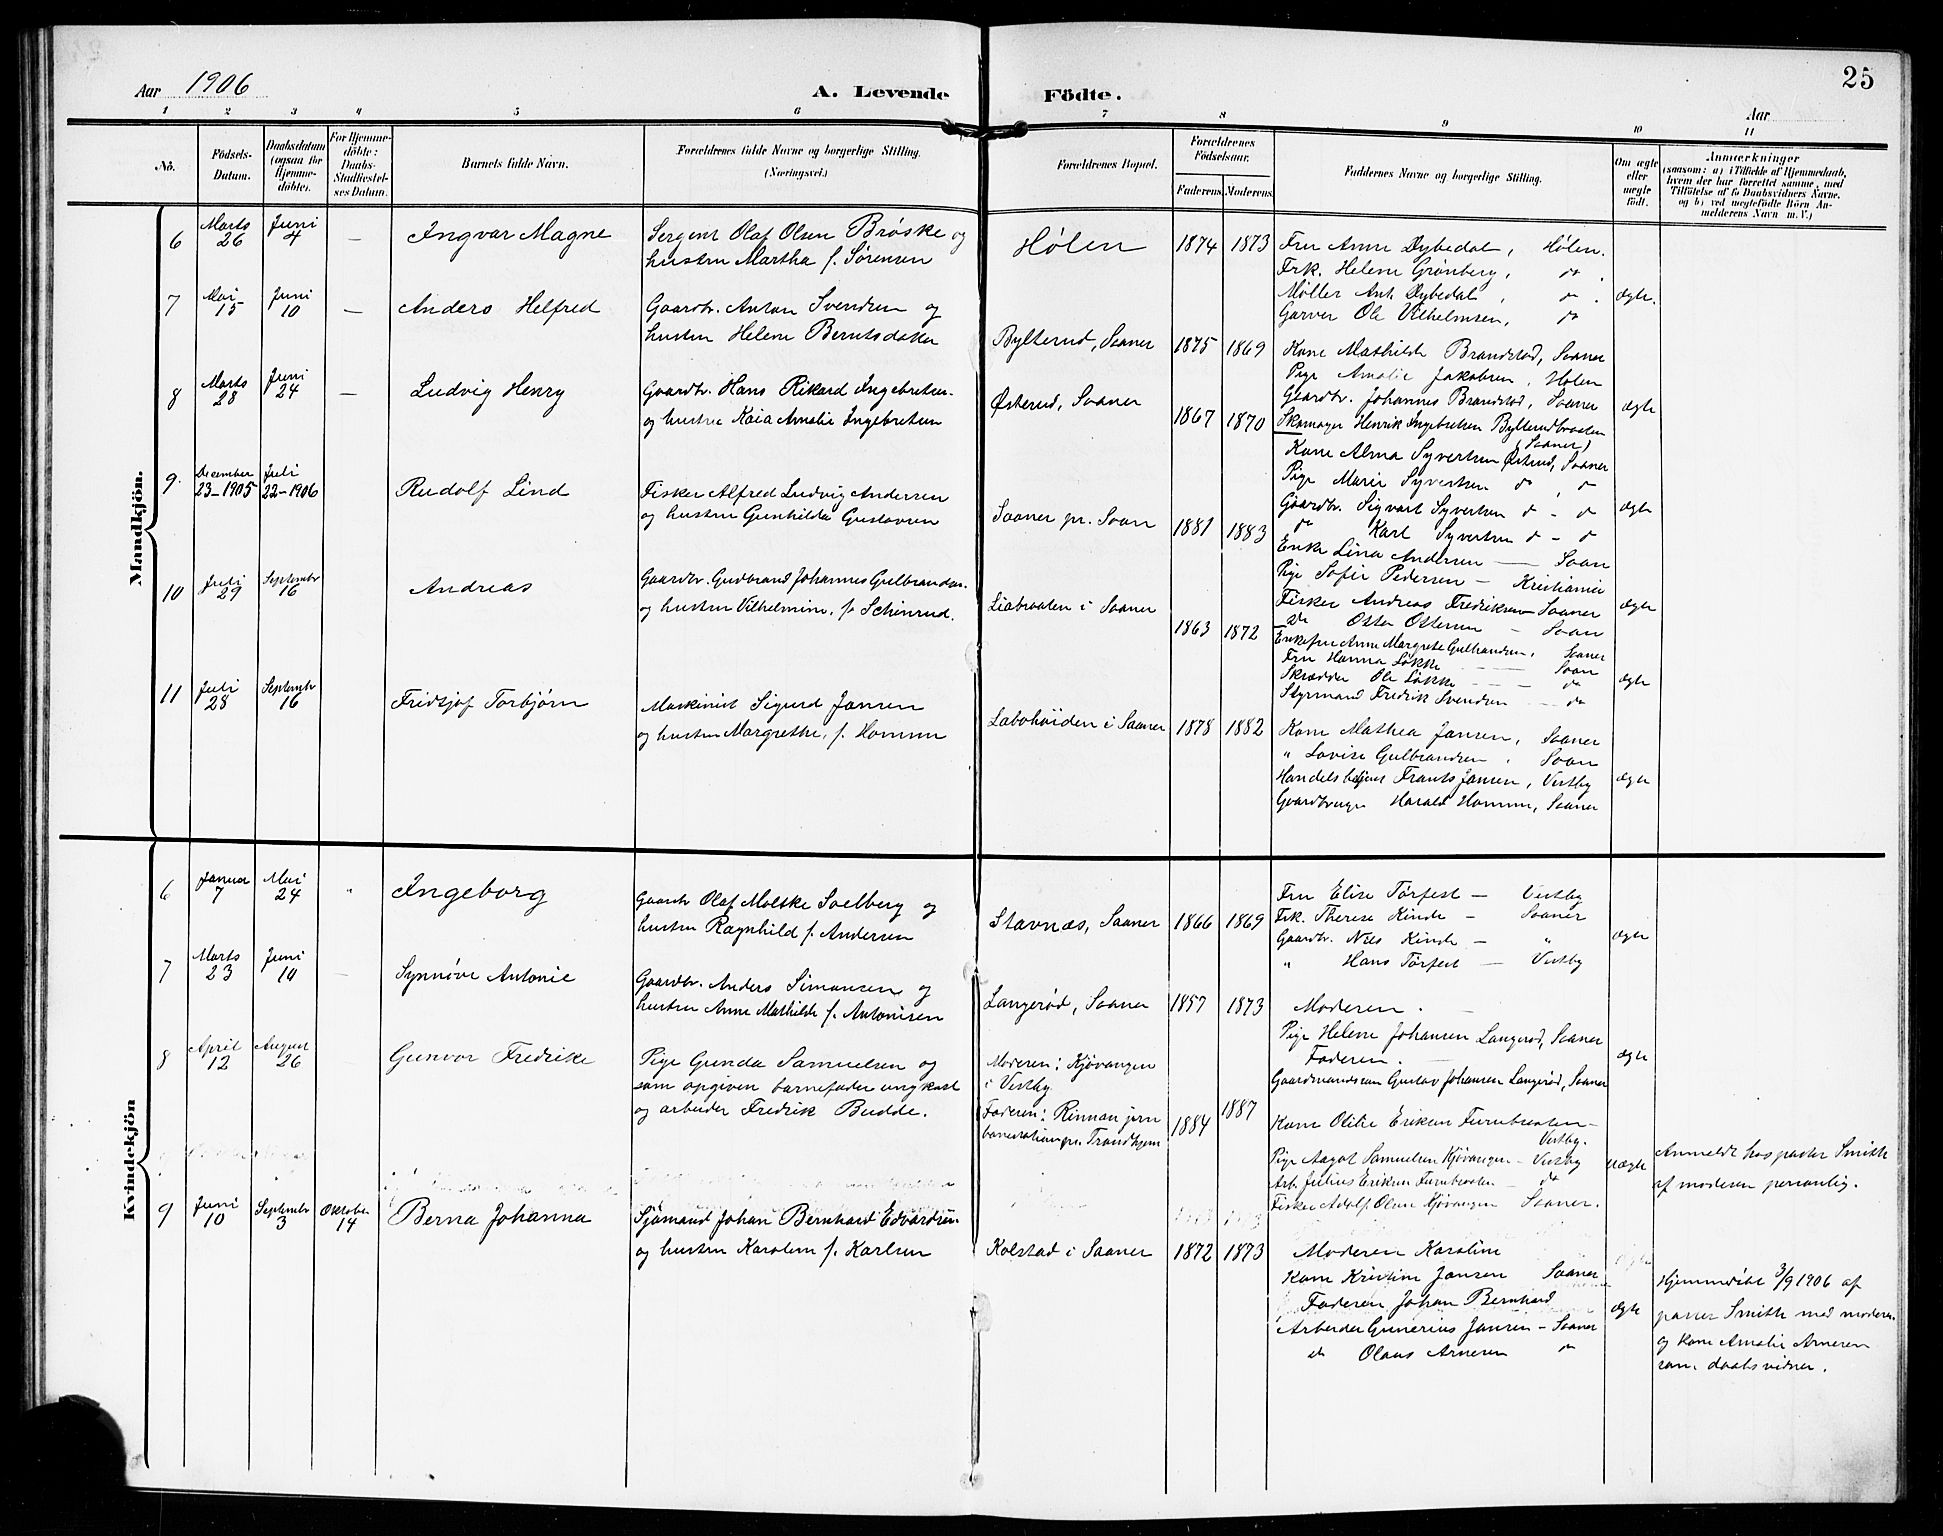 Aar 1906
A. Levende Födte.
25
Aar
1 2 3 4 5 6 7 8 9 10 11
No.
Födsels-Datum.
Daabsdatum (ogsaa for Hjemmedöbte).
For Hjemmedöbte: Daabs-Stadfæstelses Datum.
Barnets fulde Navn.
Forældrenes fulde Navne og borgerlige Stilling. (Næringsvei.)
Forældrenes Bopæl.
Forældrenes Födselsaar.
Faderens Moderens
Faddernes Navne og borgerlige Stilling.
Om ægte eller uægte födt.
Anmærkninger
(saasom: a) i Tilfælde af Hjemmedaab, hvem der har forrettet samme, med Tilföielse af to Daabsvidners Navne, og b) ved uægtefödte Börn Anmelderens Navn m. V.)
Mandkjön.
6 Marts 26 Juni 4 — Ingvar Magne
Sergent Olaf Olsen Brøske og
hustru Martha f. Sørensen
Hølen 1874 1873
Fru Anna Dybedal, Hølen.
Frk. Helene Grønberg, do.
Møller Ant. Dybedal, do.
Garver Ole Vilhelmsen, do
ægte.
7 Mai 15 Juni 10 — Anders Helfred
Gaardbr. Anton Svendsen og
hustru Helene Berntsdatter
Bylterud, Saaner 1875 1869
Kone Mathilde Brandstad, Saaner
Pige Amalie Jakobsen, Hølen
Gaardbr. Johannes Brandstad, Saaner
Skomager Henrik Ingebretsen Bylterudbraaten (Saaner)
ægte
8 Marts 28 Juni 24 — Ludvig Henry
Gaardbr. Hans Rikard Ingebretsen
og hustru Kaia Amalie Ingebretsen
Østerud, Saaner 1867 1870
Kone Alma Syvertsen Østerud, Saaner
Pige Marie Syvertsen do, do
Gaardbr. Sigvart Syvertsen do - do
do Karl Syvertsen do - do
ægte
9 December 23-1905 Juli 22-1906 Rudolf Lind
Fisker Alfred Ludvig Andersen
og hustru Gunhilda Gustavsen
Saaner pr. Soon 1881 1883
Enke Lina Andersen — Soon
Pige Sofie Pedersen — Kristiania
Fisker Andreas Fredriksen — Saaner
do Otto Ottersen — Soon
ægte
10 Juli 29 September 16 Andreas
Gaardbr. Gudbrand Johannes Gulbrandsen
og hustru Vilhelmine, f. Schinrud.
Liabraaten i Saaner 1863 1872
Enkefru Anne Margrete Gulbrandsen, Saaner
Fru Hanna Løkke — Soon
Skrædder Ole Løkke — do
Styrmand Fredrik Svendsen — do
ægte
11 Juli 28 September 16 Fridtjof Torbjørn
Maskinist Sigurd Jansen
og hustru Margrethe, f. Hommen
Labohøiden i Saaner 1878 1882
Kone Mathea Jansen, Saaner
" Lovise Gulbrandsen, Soon
Handelsbetjent Frants Jansen, Vestby
Gaardbruger Harald Hommen, Saaner
ægte
Kvindekjön
6 Januar 7 Mai 24 " Ingeborg
Gaardbr Olaf Moltke Soelberg og
hustru Ragnhild f. Andersen
Stavnæs, Saaner 1866 1869
Fru Elise Tørfest — Vestby
Frk. Therese Kinde — Saaner
Gaardbr. Nils Kinde — "
" Hans Tørfest — Vestby
ægte
7 Marts 23 Juni 10 — Synnøve Antonie
Gaardbr. Anders Simonsen og
hustru Anne Mathilde f. Antonisen
Langerød, Saaner 1857 1873
Moderen.
Pige Helene Johansen Langerød, Saaner
Faderen.
Gaardmandssøn Gustav Johansen Langerød, Saaner
ægte
8 April 12 August 26 Gunvor Fredrike
Pige Gunda Samuelsen og
som opgiven barnefader ungkarl
og arbeider Fredrik Budde.
Moderen: Kjøvangen
i Vestby
Faderen: Rinnan jern
banestation pr. Trondhjem
1884 1887
Kone Otilie Eriksen Furubraaten — Vestby.
Pige Aagot Samuelsen Kjøvangen — Vestby
Arb. Julius Eriksen Furubraaten — do
Fisker Adolf Olsen Kjøvangen Saaner.
uægte
Anmeldt hos pastor Smith
af moderen personlig.
9 Juni 10 September 3 Oktober 14 Berna Johanna
Sjømand Johan Bernhard Edvardsen
og hustru Karoline f. Karlsen
Kolstad i Saaner 1872 1873
Moderen Karoline
Kone Kristine Jansen Saaner
Faderen Johan Bernhard
Arbeider Gunerius Jansen — Saaner
do Olaus Arnesen do
ægte
Hjemmedøbt 3/9 1906 af
pastor Smith med moderen
og kone Amalie Arnesen
som daabsvidner.